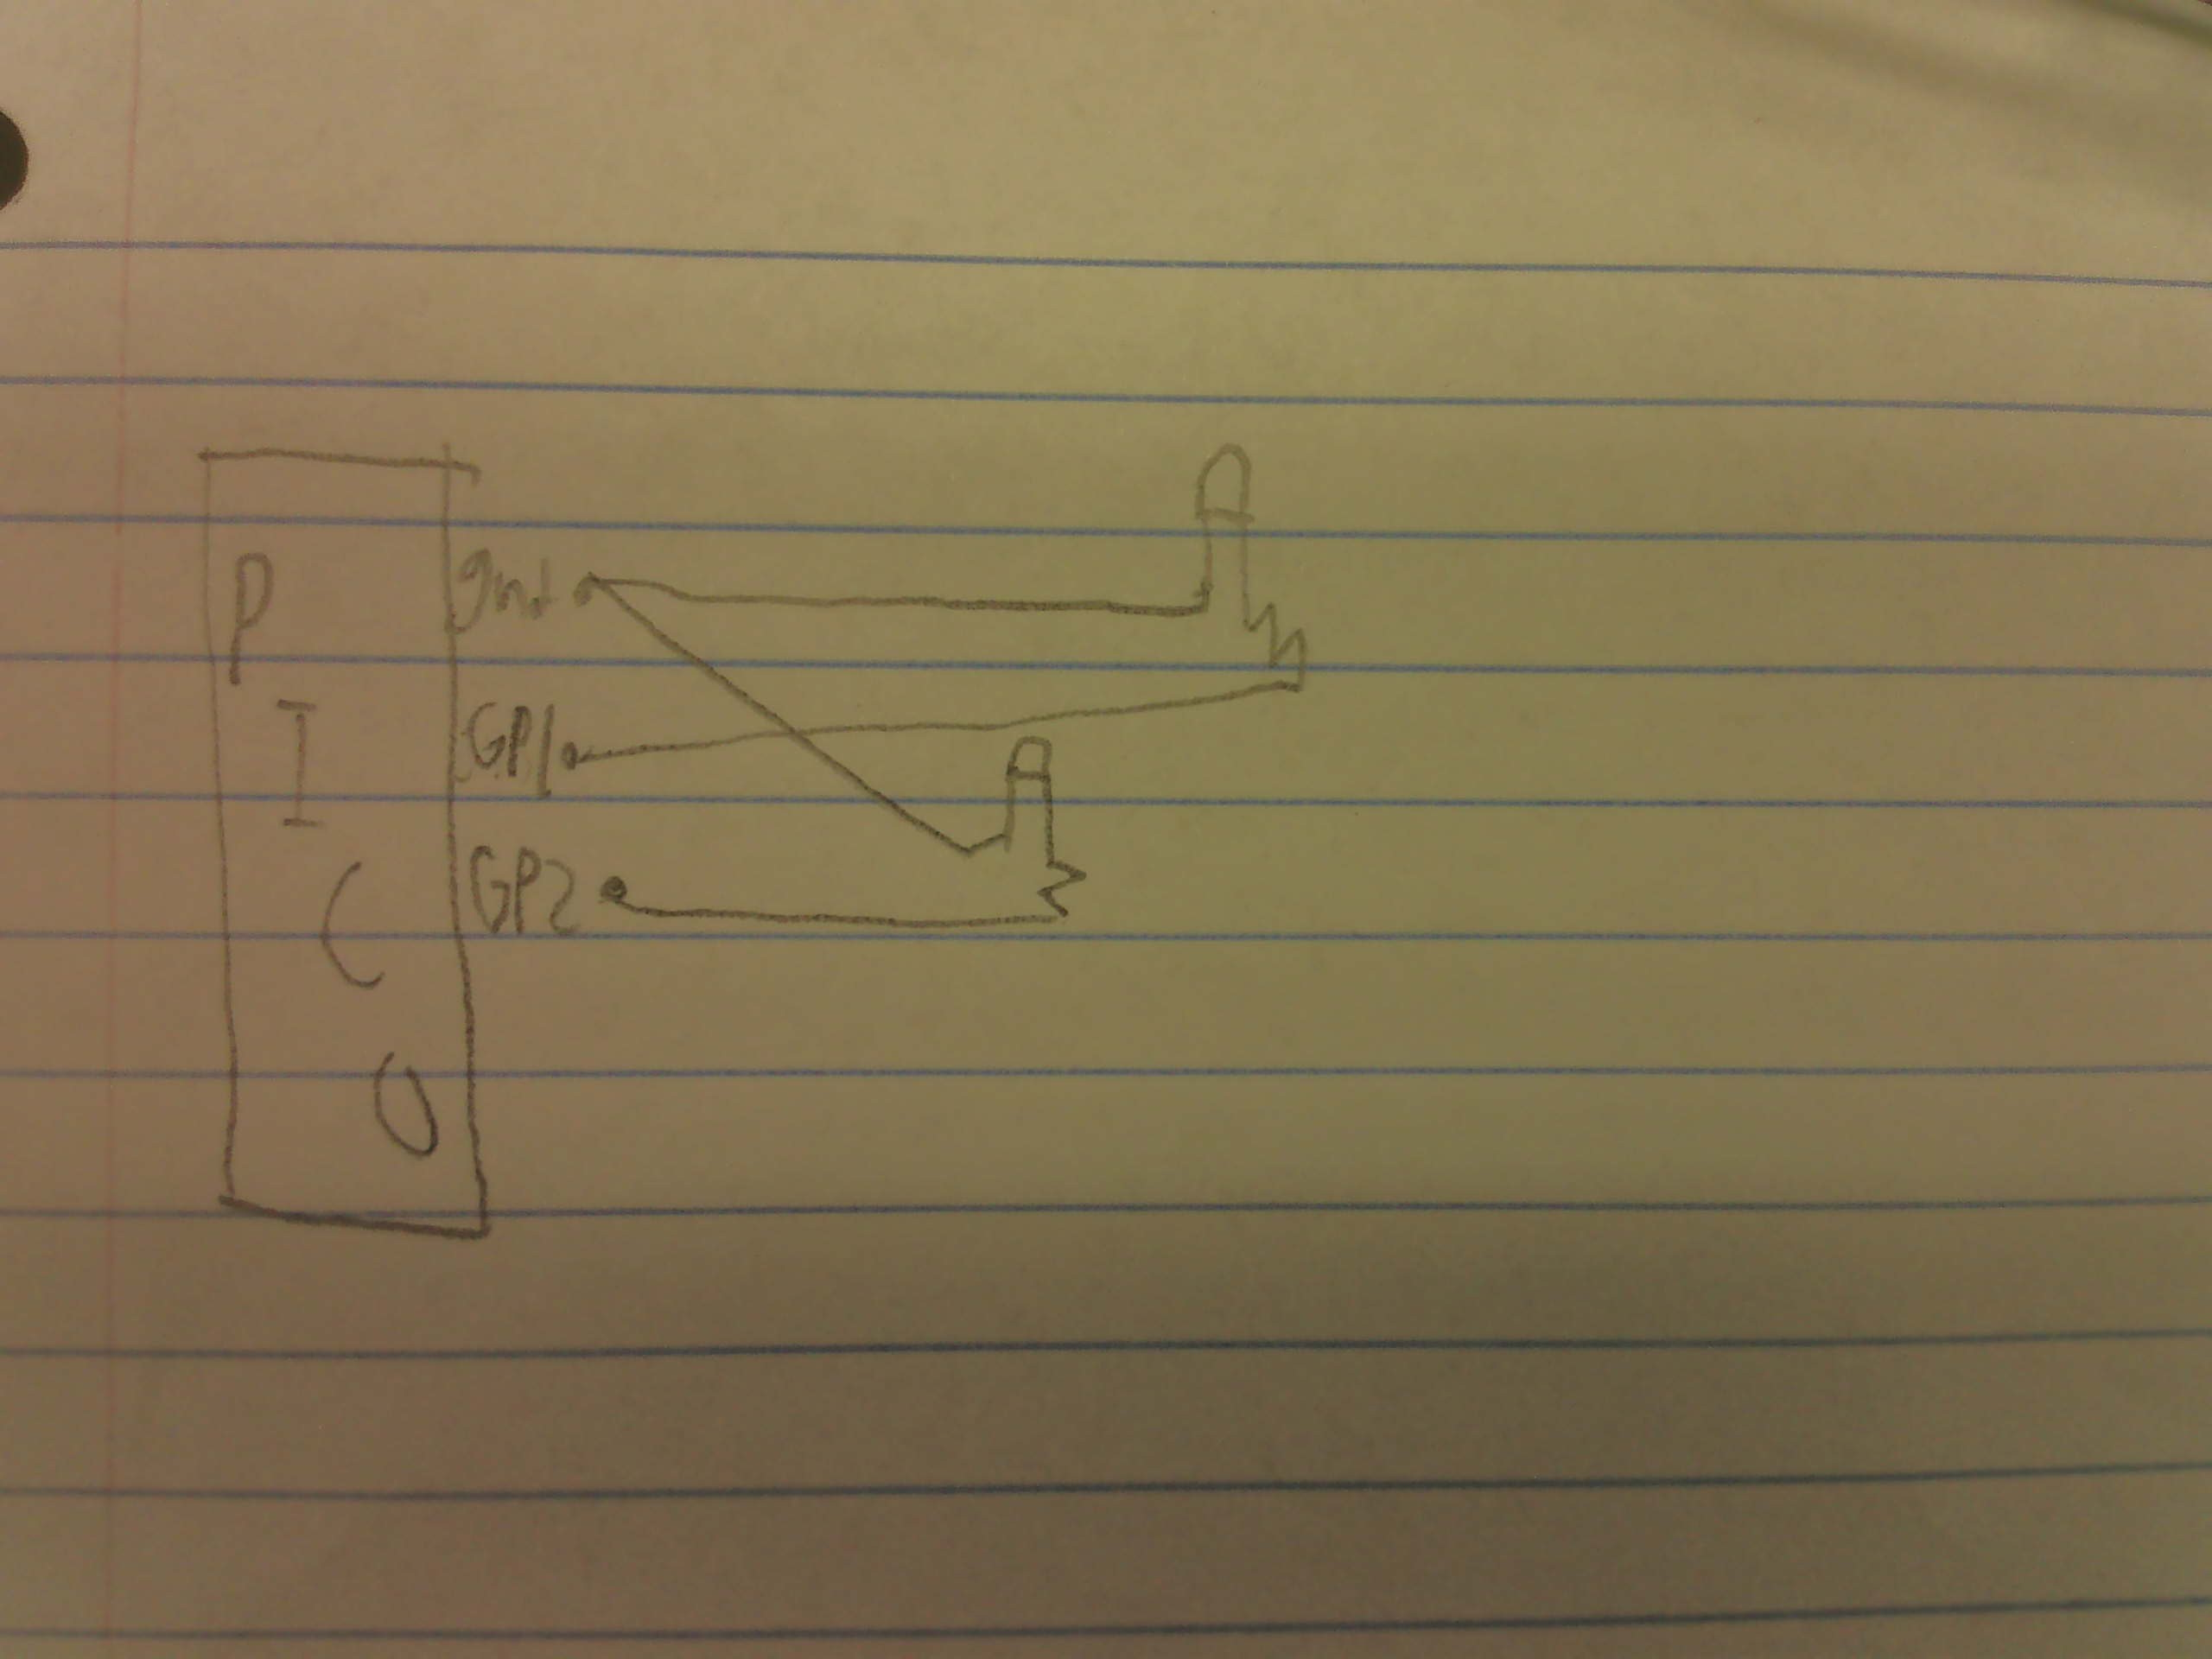 PICO
gnd
GP1
GP2